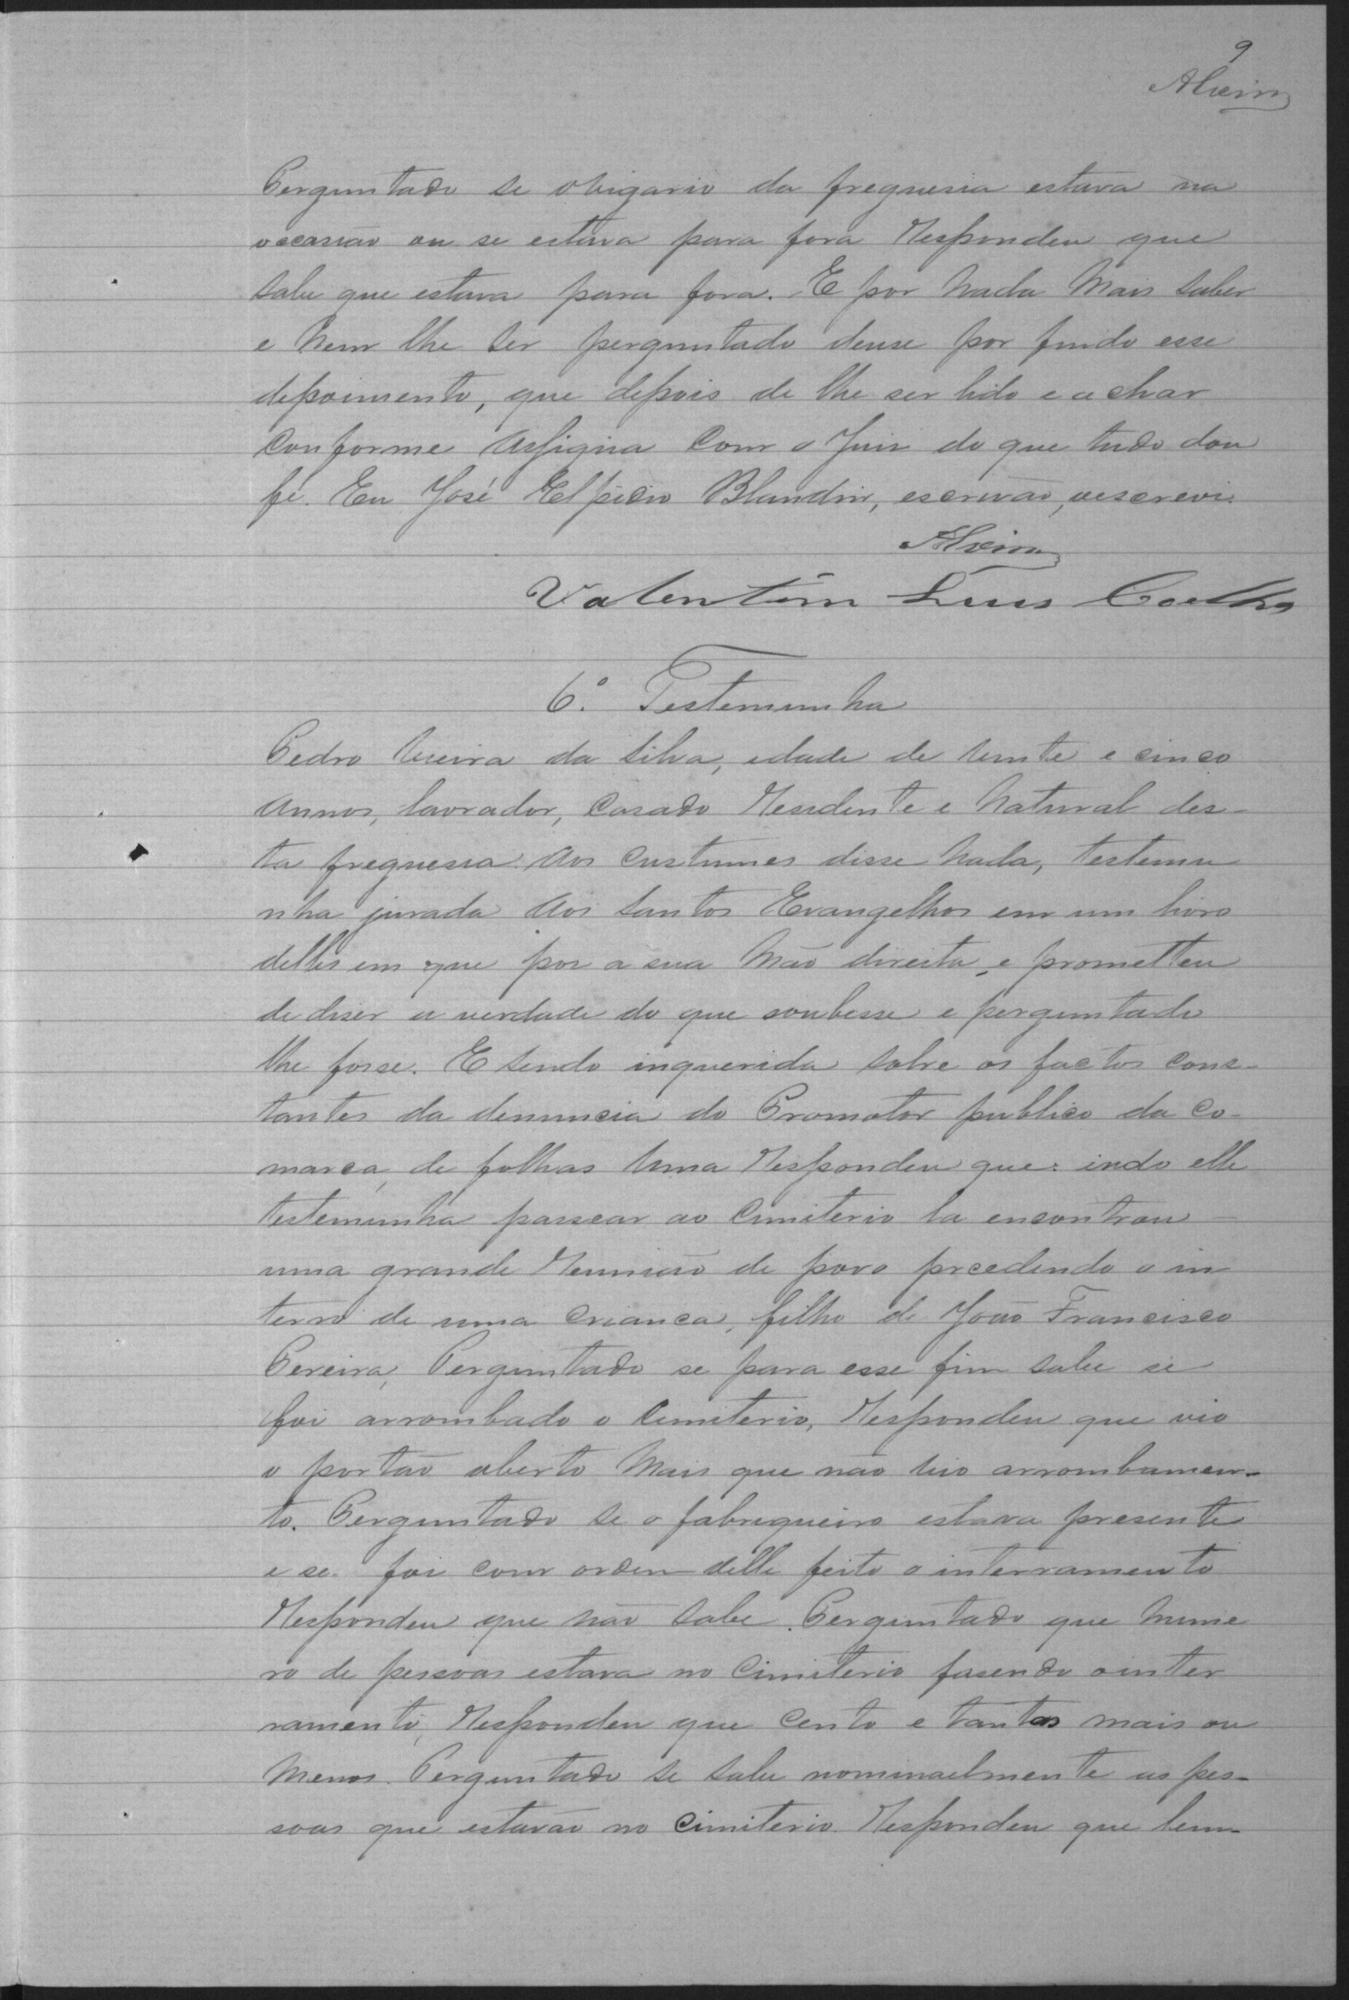 9
Alvim
Perguntado se ovigario da freguesia estava na
occasiao ou se estava para fora Respondeu que
sabe que estava para fora. E por nada mais saber
e nem lhe ser perguntado deuse por findo esse
depoimento, que depois de lhe ser lido e achar
conforme assigna com o Juis do que tudo dou
fé. Eu José Elpidio Blandin, escrivão, oescrevi.
Alvim
Valentim Luis Coelho
6ª. Testemunha
Pedro Vieira da Silva, edade de vinte e cinco
annos, lavrador, casado Residente e natural des-
ta freguesia. Aos custumes disse nada, testemu
nha jurada aos Santos Evangelhos em um livro
delles em que pos a sua mão direita, e prometteu
de diser a verdade do que soubesse e perguntado
lhe fosse. E sendo inquerida sobre os factos cons-
tantes da denuncia do Promotor publico da co-
marca, de folhas uma Respondeu que: indo elle
testemunha passear ao cimiterio la encontrou
uma grande Reunião de povo precedendo o in
terro de uma criança, filho de João Francisco
Pereira, Perguntado se para esse fim sabe si
foi arrombado o Cimiterio, Respondeu que vio
o portão aberto mais que não vio arrombamen-
to. Perguntado se o fabriqueiro estava presente
e se foi com ordem delle feito o interramento
Respondeu que não sabe. Perguntado que nume
ro de pessoas estava no Cimiterio fasendo ointer
ramento, Respondeu que cento e tantas mais ou
menos. Perguntado se sabe nominaelmente as pes-
soas que estavão no cimiterio. Respondeu que lem-